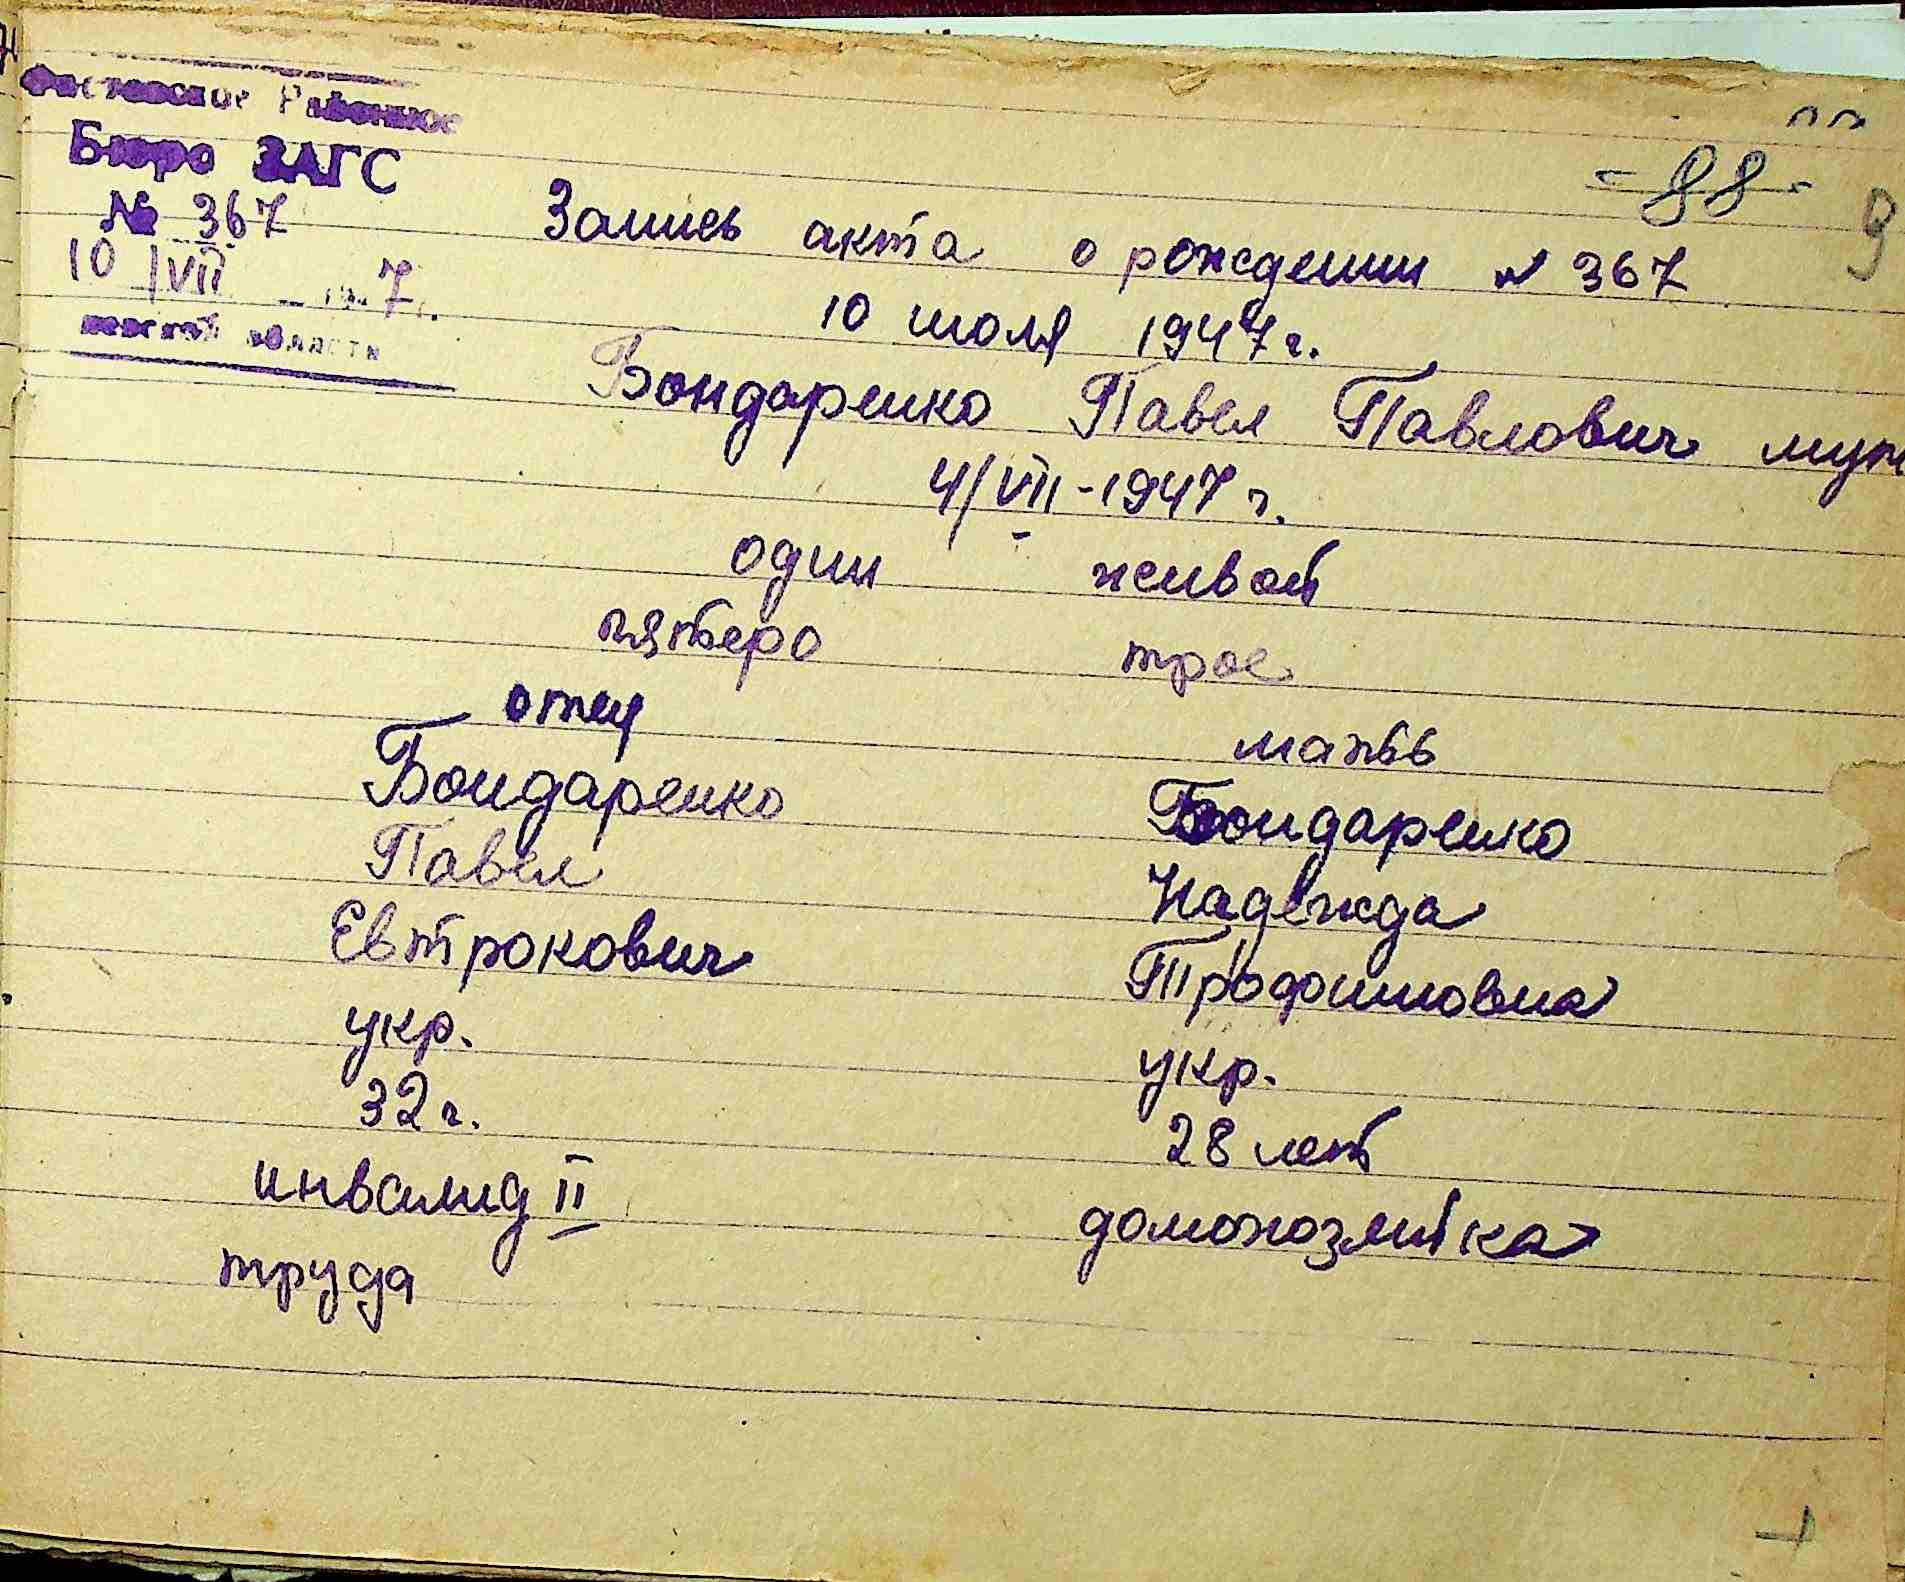 Фастовское Районное
Бюро ЗАГС
№ 367
10/VII 1947г.
области
- 88 -
9
Запись акта о рождении № 367
10 июля 1947г.
Бондаренко Павел Павлович муж
4/VII-1947 г.
один живой
пятеро трое
отец мать
Бондаренко Бондаренко
Павел Надежда
Евтрокович Трофимовна
укр. укр.
32 г. 28 лет
инвалид II домохозяйка
труда